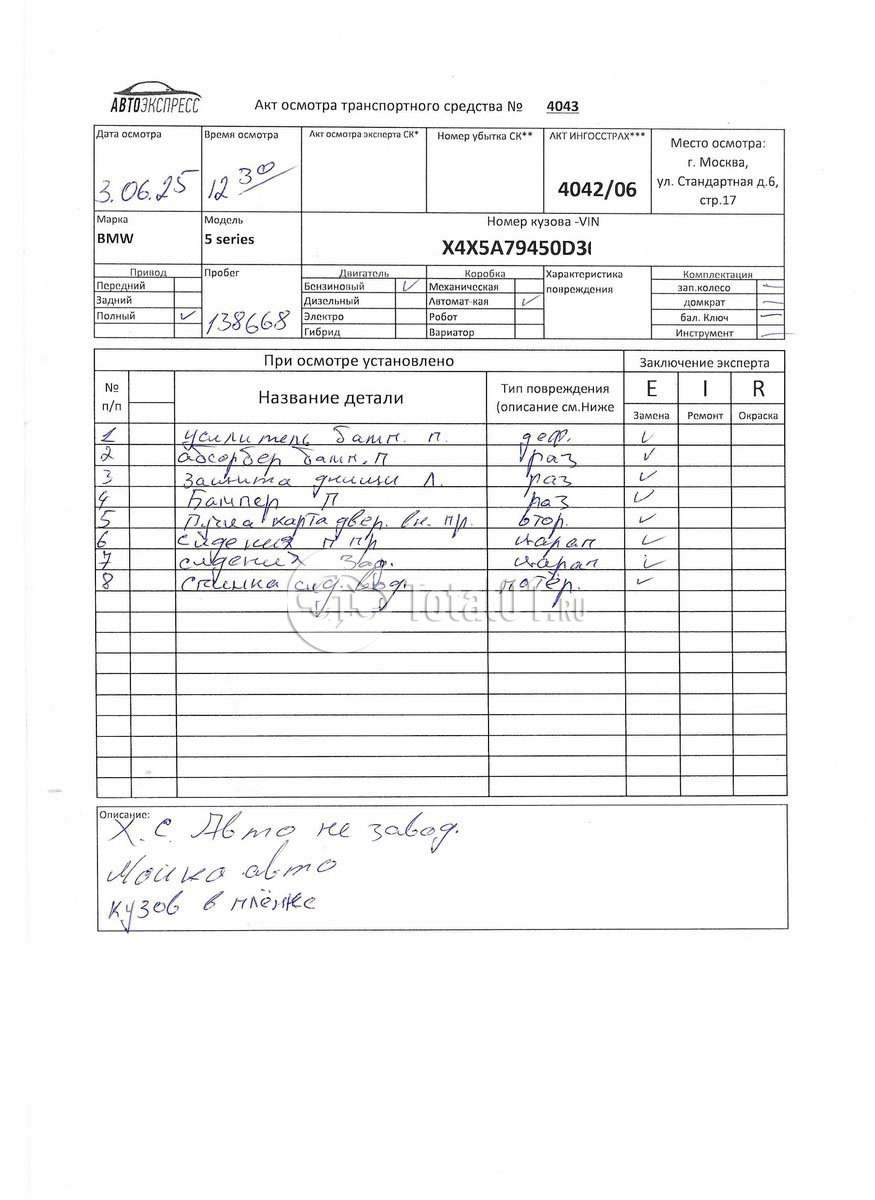 АВТОЭКСПРЕСС
Акт осмотра транспортного средства № 4043
Дата осмотра Время осмотра Акт осмотра эксперта СК* Номер убытка СК** АКТ ИНГОССТРАХ*** Место осмотра:
г. Москва,
ул. Стандартная д.6,
стр.17
3.06.25 12 30 4042/06
Марка Модель Номер кузова -VIN
BMW 5 series X4X5A79450D3
Привод Пробег Двигатель Коробка Характеристика повреждения Комплектация
Передний Бензиновый ✓ Механическая зап.колесо —
Задний Дизельный Автомат-кая ✓ домкрат —
Полный ✓ 138668 Электро Робот бал. Ключ —
Гибрид Вариатор Инструмент —
При осмотре установлено Заключение эксперта
№ п/п Название детали Тип повреждения (описание см.Ниже E I R
Замена Ремонт Окраска
1 усилитель бамп. п. деф. ✓
2 абсорбер бамп. П раз ✓
3 Защита днища Л. раз ✓
4 Бампер П раз ✓
5 Ручка карта двер. вн. пр. втор. ✓
6 сидения п пр царап ✓
7 сидения Зад. царап ✓
8 Спинка сид. вод. потёр. ✓
Total01.RU
Описание:
Х. С. Авто не завод.
Мойка авто
кузов в плёнке